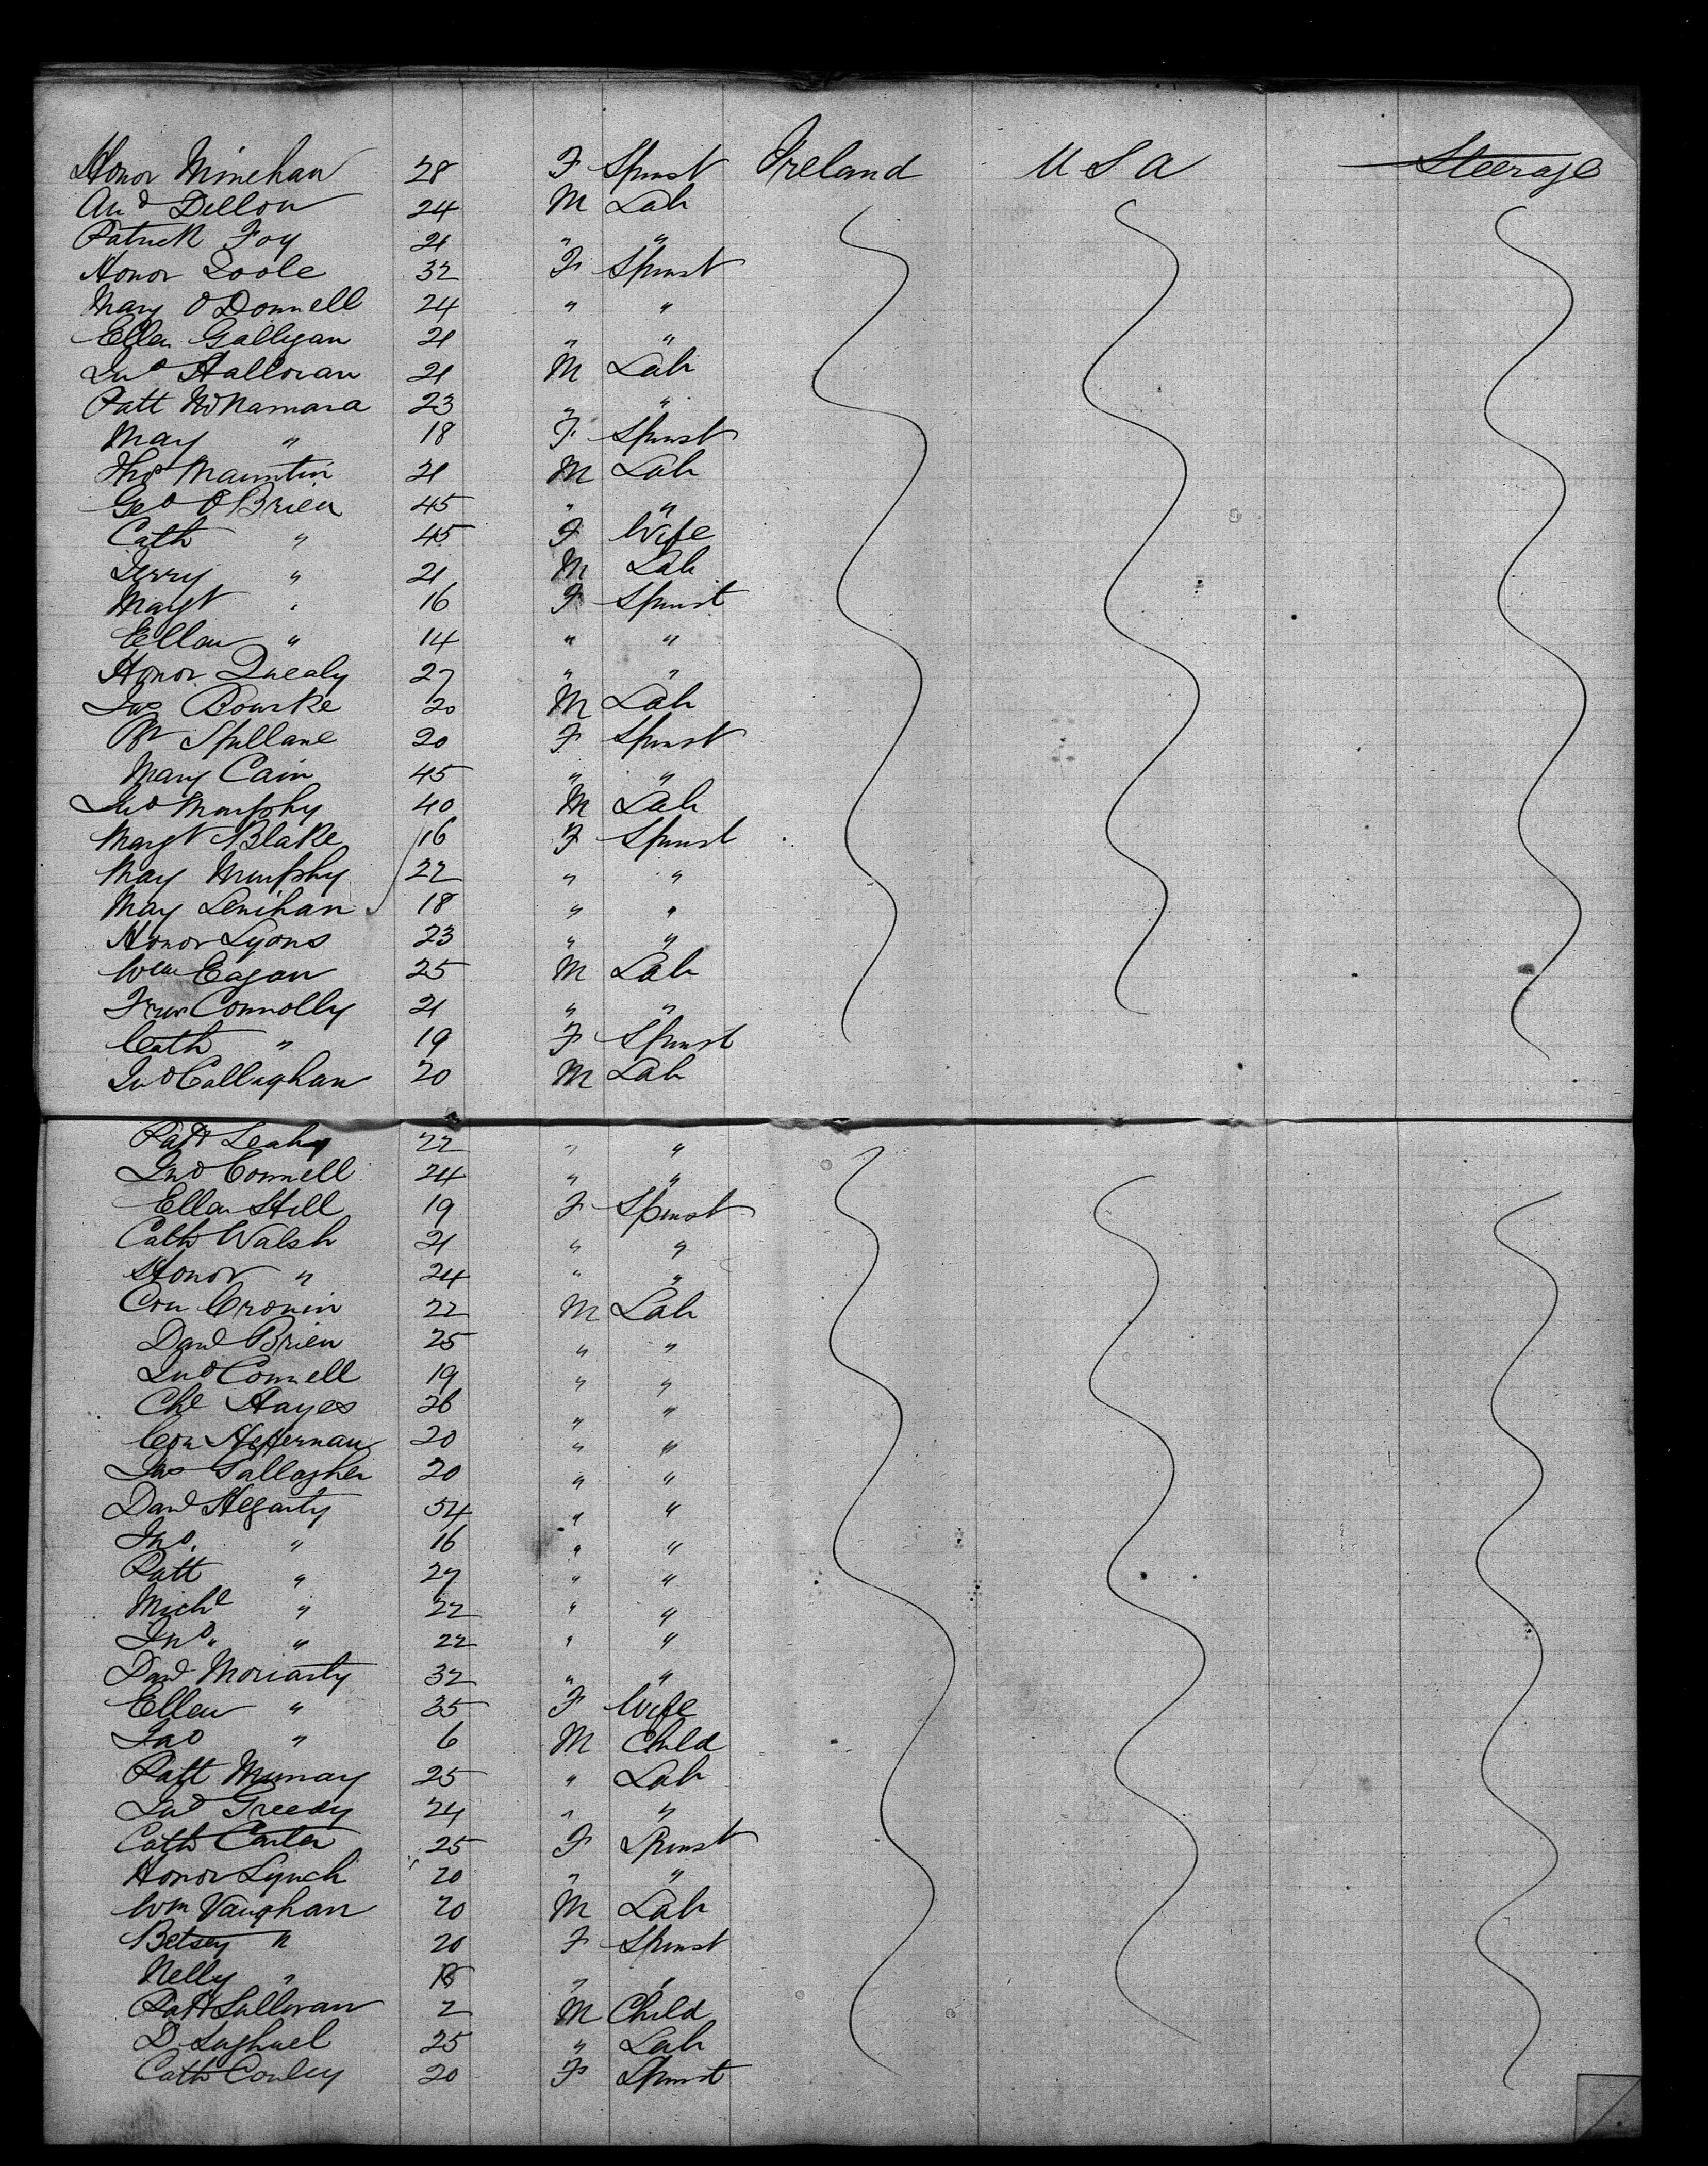 Honor Minehan 28 F Spinst Ireland USA Steerage
And Dillon 24 M Lab
Patrick Foy 21 " "
Honor Toole 32 F Spinst
Mary O'Donnell 24 " "
Ellen Galligan 21 " "
Jno Halloran 21 M Lab
Patt McNamara 23 " "
May " 18 F Spinst
Thos 21 M Lab
Geo O'Brien 45 " "
Cath " 45 F Wife
Jerry " 21 M Lab
Margt " 16 F Spinst
Ellen " 14 " "
Honor Quealy 27 " "
Jas Bourke 20 M Lab
Spillane 20 F Spinst
Mary Cain 45 " "
Jno Murphy 40 M Lab
Margt Blake 16 F Spinst
May Murphy 22 " "
May Lenihan 18 " "
Honor Lyons 23 " "
Wm Eagan 25 M Lab
Connolly 21 " "
Cath " 19 F Spinst
Jno Callaghan 20 M Lab
Patt Leahy 22 " "
Jno Connell 24 " "
Ellen Hill 19 F Spinst
Cath Walsh 21 " "
Honor " 24 " "
Con Cronin 22 M Lab
Danl Brien 25 " "
Jno Connell 19 " "
Hayes 26 " "
Con Heffernan 20 " "
Jas Gallagher 20 " "
Danl Hegarty 54 " "
Jno. " 16 " "
Patt " 27 " "
Michl " 22 " "
Jno. " 22 " "
Danl Moriarty 32 " "
Ellen " 35 F Wife
" 6 M Child
Patt Murray 25 " Lab
Greedy 24 " "
Cath Carter 25 F Spinst
Honor Lynch 20 " "
Wm Vaughan 20 M Lab
Betsey " 20 F Spinst
Nelly " 18 " "
Patt Sullivan 2 M Child
D. 25 " Lab
Cath Conley 20 F Spinst